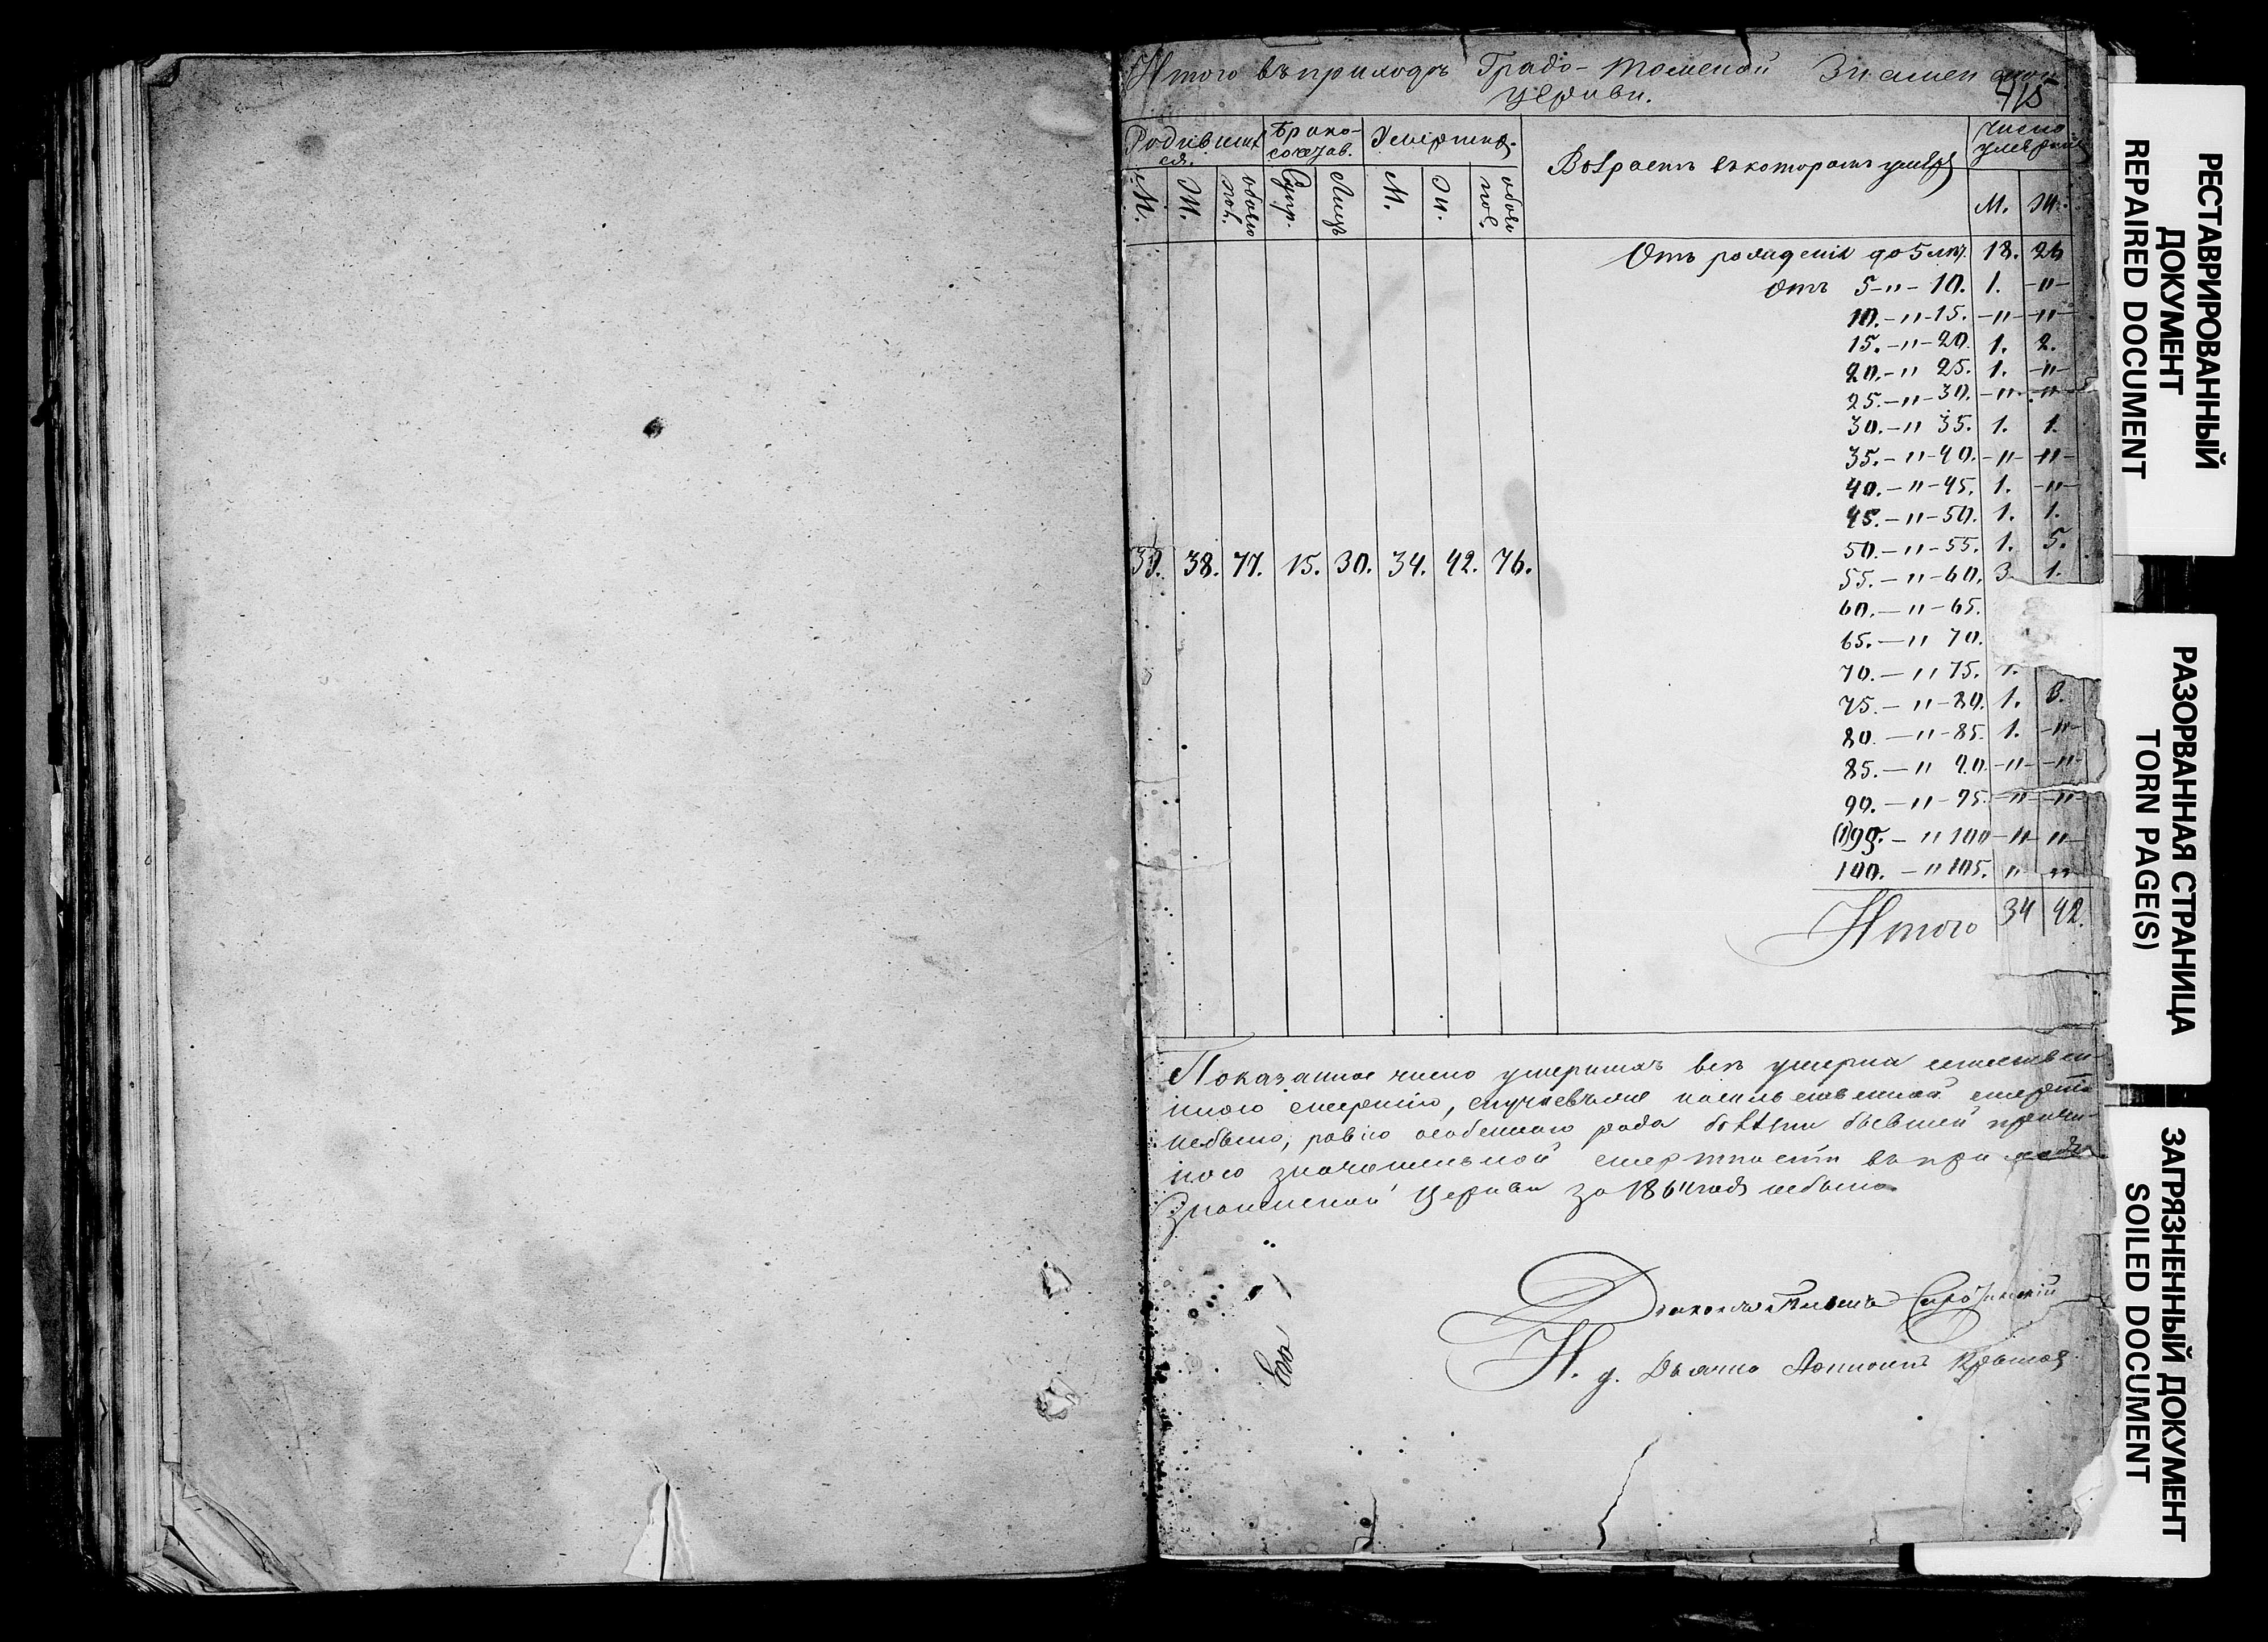 Итого въ приходѣ Градо-Томской Знамен
415
церкви.
Родивших
ся.
Брако-
сочетав.
Умерших.
Возрастъ въ которомъ умер
Число
умерших
М.
Ж.
обоего
пол.
Супр.
Лицъ
М.
Ж.
обоего
пол.
М.
Ж.
Отъ рожденія до 5 лѣт. 18. 26
Отъ 5-"-10. 1. -"-
10.-"-15. -"- -"-
15.-"-20. 1. 2.
20.-" 25. 1. -"-
25.-"-30. -"- -"-
30.-" 35. 1. 1.
35.-"-40. -"- -"-
40.-"-45. 1. -"-
45.-"-50. 1. 1.
50.-"-55. 1. 5.
39. 38. 77. 15. 30. 34. 42. 76.
55.-"-60. 3. 1.
60.-"-65.
65.-" 70.
70.-" 75. 1.
75.-"-80. 1. 3.
80.-"-85. 1. -"-
85.-" 90. -"- -"-
90.-"-95. -"- -"-
95.-" 100 -"- -"-
100.-" 105. " "
Итого 34 42.
Показанное число умершихъ всѣ умерли естествен-
ною смертію, случаевъ насильственной смерти
небыло, равно особеннаго рода болѣзни бывшей причи-
ною значительной смертности въ приходѣ
Знаменской Церкви за 1864 годъ небыло.
Діаконъ
И. д. Дьячка
РЕСТАВРИРОВАННЫЙ
ДОКУМЕНТ
REPAIRED DOCUMENT
РАЗОРВАННАЯ СТРАНИЦА
TORN PAGE(S)
ЗАГРЯЗНЕННЫЙ ДОКУМЕНТ
SOILED DOCUMENT